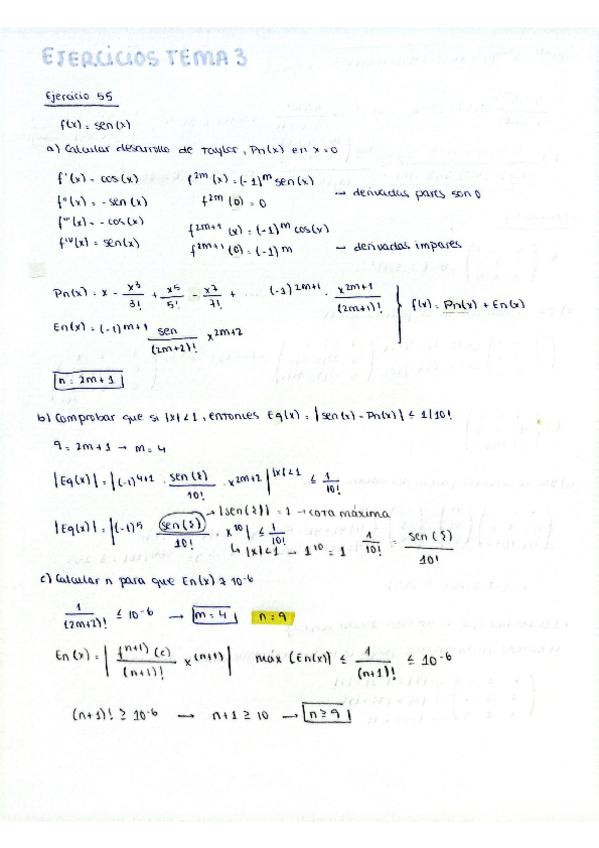 EJERCICIOS TEMA 3
Ejercicio 55
f(x) = sen(x)
a) Calcular desarrollo de Taylor, Pn(x) en x=0
f'(x) = cos(x) f^2m (x) = (-1)^m sen(x)
f''(x) = -sen(x) f^2m (0) = 0 → derivadas pares son 0
f'''(x) = -cos(x) f^2m+1 (x) = (-1)^m cos(x)
f^IV(x) = sen(x) f^2m+1 (0) = (-1)^m → derivadas impares
Pn(x) = x - x^3/3! + x^5/5! - x^7/7! + ... (-1)^2m+1 . x^2m+1/(2m+1)! } f(x) = Pn(x) + En(x)
En(x) = (-1)^m+1 sen/(2m+2)! x^2m+2
n = 2m+1
b) Comprobar que si |x|<1, entonces E9(x) = |sen(x) - Pn(x)| ≤ 1/10!
9 = 2m+1 → m = 4
|E9(x)| = |(-1)^4+1 . sen(ξ)/10! . x^2m+2| |x|<1 ≤ 1/10!
→ |sen(ξ)| = 1 → cota máxima
|E9(x)| = |(-1)^5 . sen(ξ)/10! x^10| ≤ 1/10!
↳ |x|<1 → 1^10 = 1 1/10! = sen(ξ)/10!
c) Calcular n para que En(x) ≥ 10^-6
1/(2m+2)! ≤ 10^-6 → m = 4 n = 9
En(x) = | f^(n+1) (c)/(n+1)! x^(n+1) | máx (En(x)) ≤ 1/(n+1)! ≤ 10^-6
(n+1)! ≥ 10^-6 → n+1 ≥ 10 → n ≥ 9